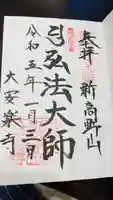 奉拝 新高野山
弘法大師
令和五年一月三日
大安楽寺